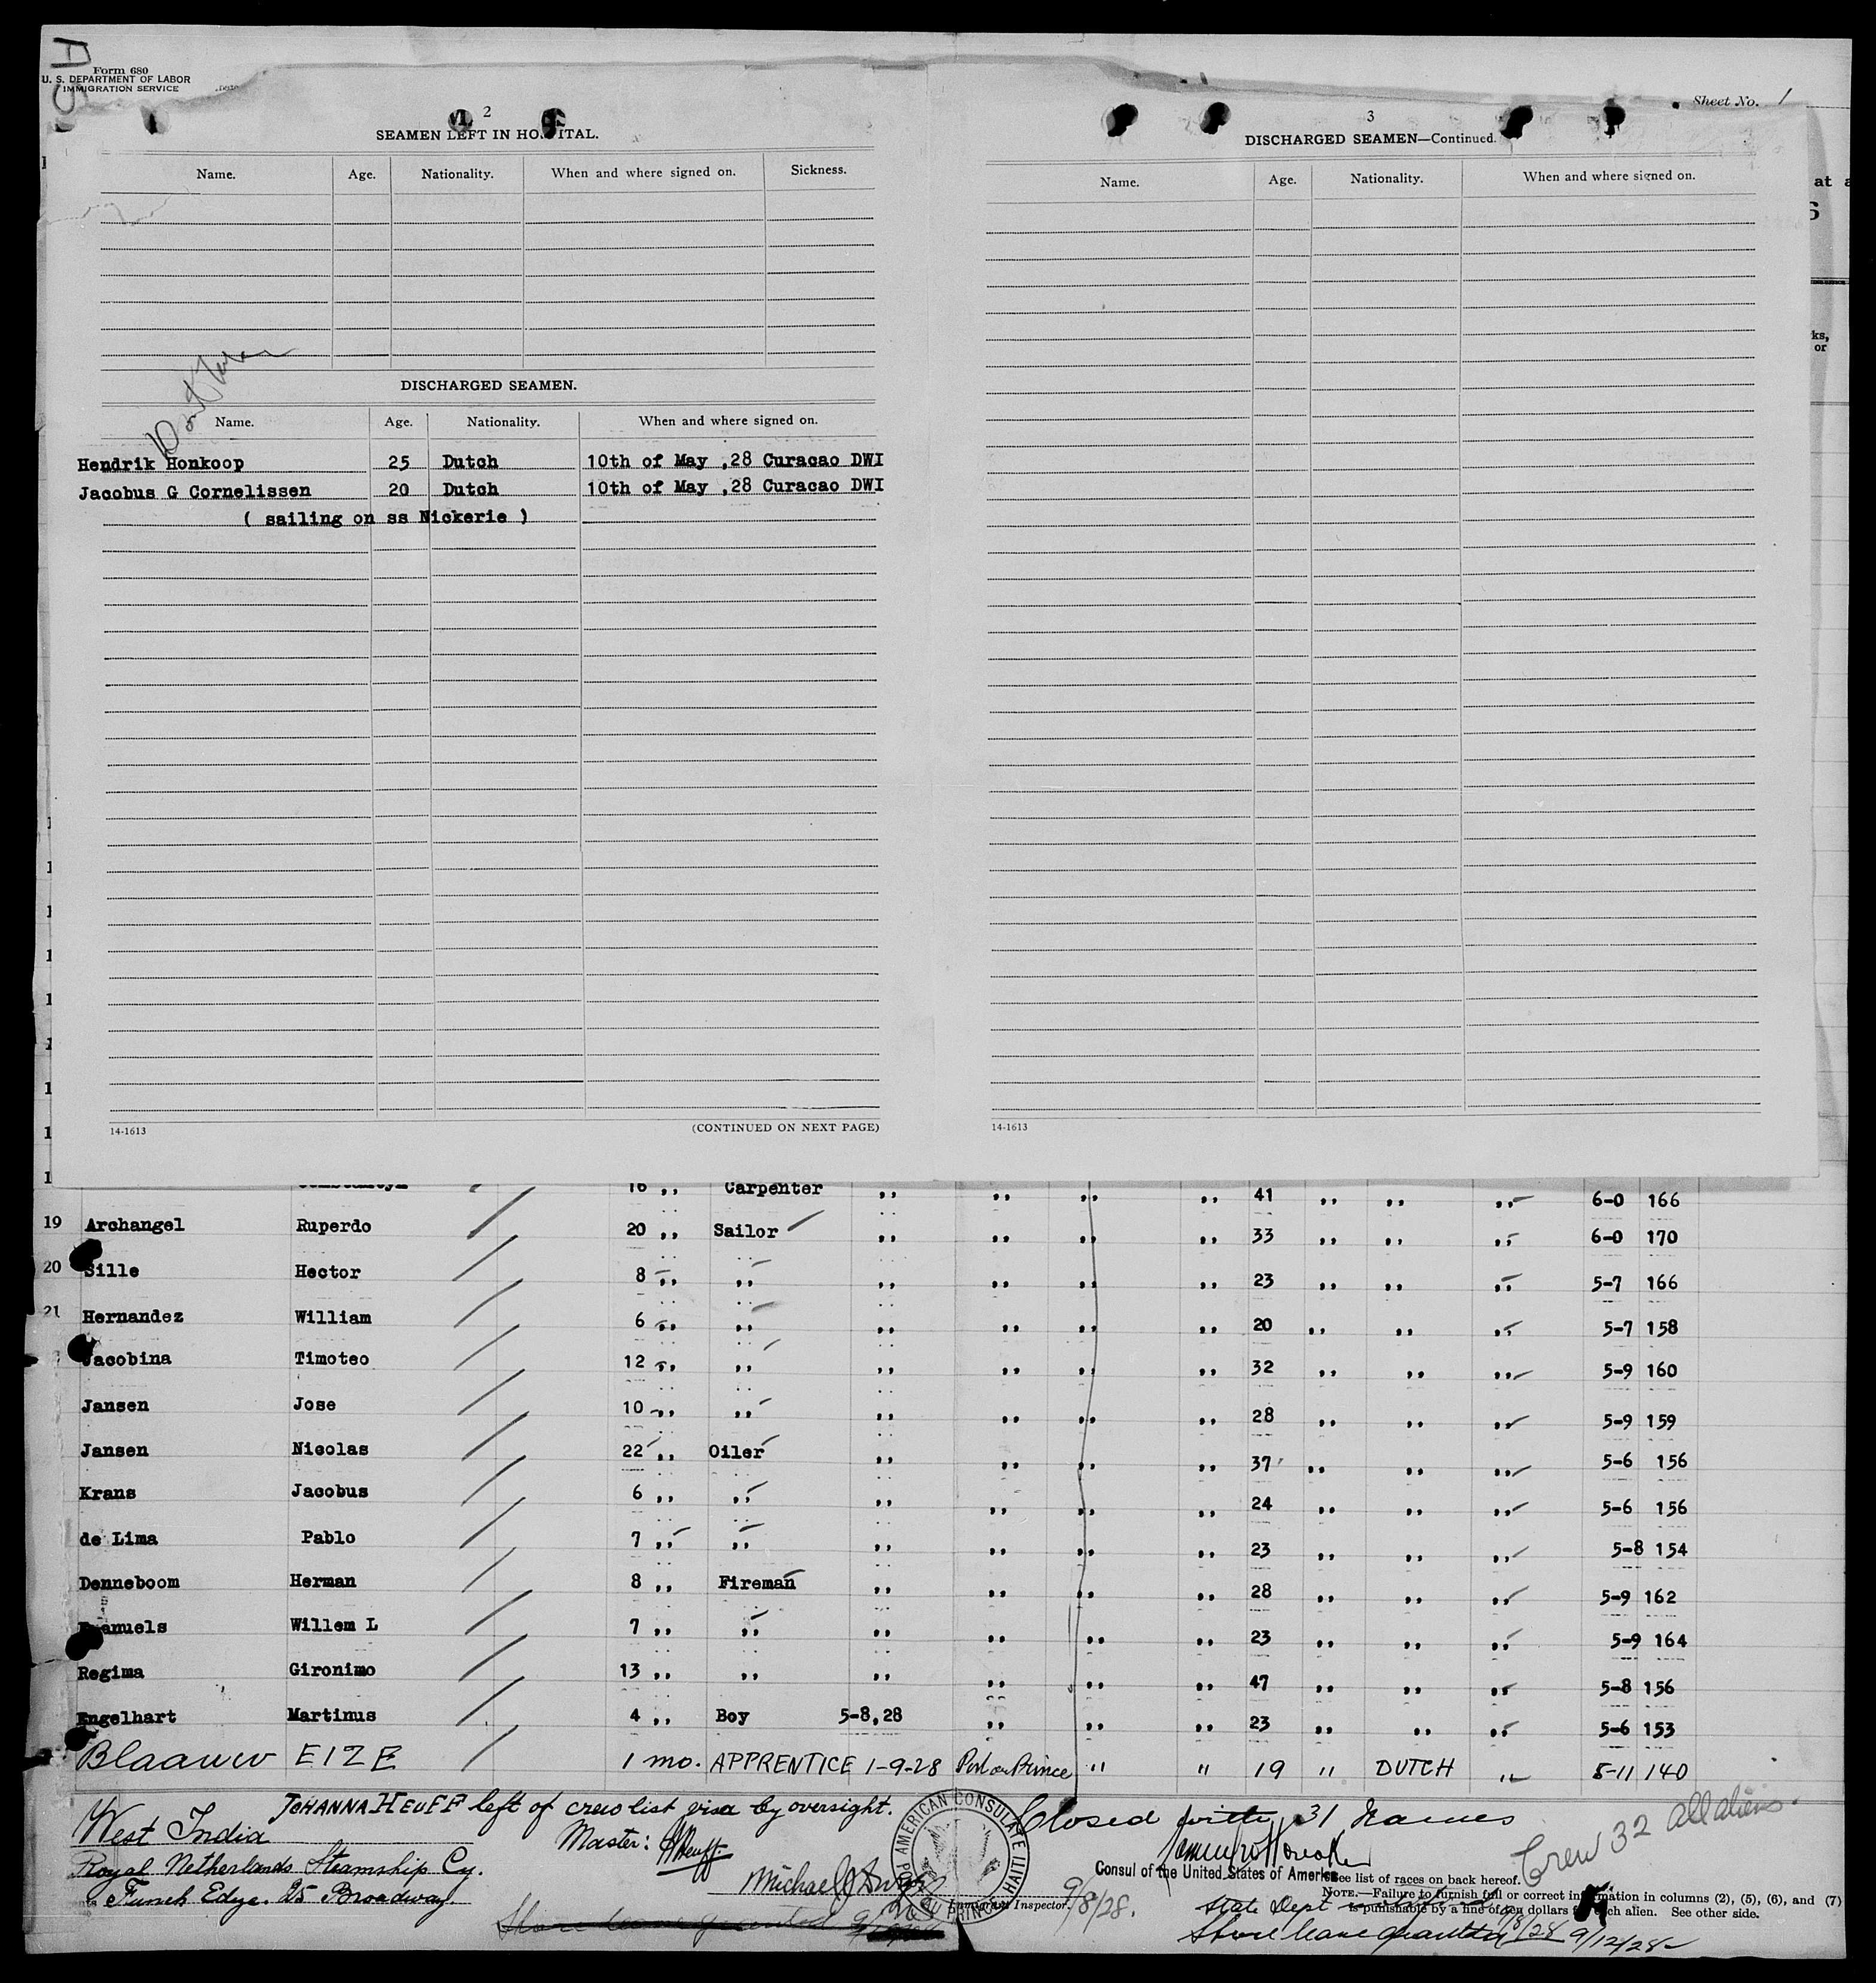 Form 680
U. S. DEPARTMENT OF LABOR
IMMIGRATION SERVICE
Sheet No. 1
2
SEAMEN LEFT IN HOSPITAL.
Name. Age. Nationality. When and where signed on. Sickness.
DISCHARGED SEAMEN.
Name. Age. Nationality. When and where signed on.
Hendrik Honkoop 25 Dutch 10th of May ,28 Curacao DWI
Jacobus G Cornelissen 20 Dutch 10th of May ,28 Curacao DWI
( sailing on ss Nickerie )
14-1613 (CONTINUED ON NEXT PAGE)
3
DISCHARGED SEAMEN—Continued.
Name. Age. Nationality. When and where signed on.
14-1613
at a
ks,
or
16 ,, Carpenter ,, ,, ,, ,, 41 ,, ,, ,, 6-0 166
19 Archangel Ruperdo 20 ,, Sailor ,, ,, ,, ,, 33 ,, ,, ,, 6-0 170
20 Sille Hector 8 ,, ,, ,, ,, ,, ,, 23 ,, ,, ,, 5-7 166
21 Hernandez William 6 ,, ,, ,, ,, ,, ,, 20 ,, ,, ,, 5-7 158
Jacobina Timoteo 12 ,, ,, ,, ,, ,, ,, 32 ,, ,, ,, 5-9 160
Jansen Jose 10 ,, ,, ,, ,, ,, ,, 28 ,, ,, ,, 5-9 159
Jansen Nicolas 22 ,, Oiler ,, ,, ,, ,, 37 ,, ,, ,, 5-6 156
Krans Jacobus 6 ,, ,, ,, ,, ,, ,, 24 ,, ,, ,, 5-6 156
de Lima Pablo 7 ,, ,, ,, ,, ,, ,, 23 ,, ,, ,, 5-8 154
Denneboom Herman 8 ,, Fireman ,, ,, ,, ,, 28 ,, ,, ,, 5-9 162
Willem L 7 ,, ,, ,, ,, ,, ,, 23 ,, ,, ,, 5-9 164
Regima Gironimo 13 ,, ,, ,, ,, ,, ,, 47 ,, ,, ,, 5-8 156
Engelhart Martinus 4 ,, Boy 5-8,28 ,, ,, ,, 23 ,, ,, ,, 5-6 153
Blaauw EIZE 1 mo. APPRENTICE 1-9-28 Port au Prince " " 19 " DUTCH " 5-11 140
JOHANNA HEUFF left of crew list visa by oversight.
Closed with 31 Names
West India
Master: Heuff.
Crew 32 all aliens.
Royal Netherlands Steamship Cy.
Funch Edye. 25 Broadway.
AMERICAN CONSULATE
PORT AU PRINCE HAITI
Consul of the United States of America
Immigrant Inspector.
9/8/28.
See list of races on back hereof.
NOTE.—Failure to furnish full or correct information in columns (2), (5), (6), and (7)
is punishable by a fine of ten dollars for each alien. See other side.
State Dept
Shore leave granted 9/12/28